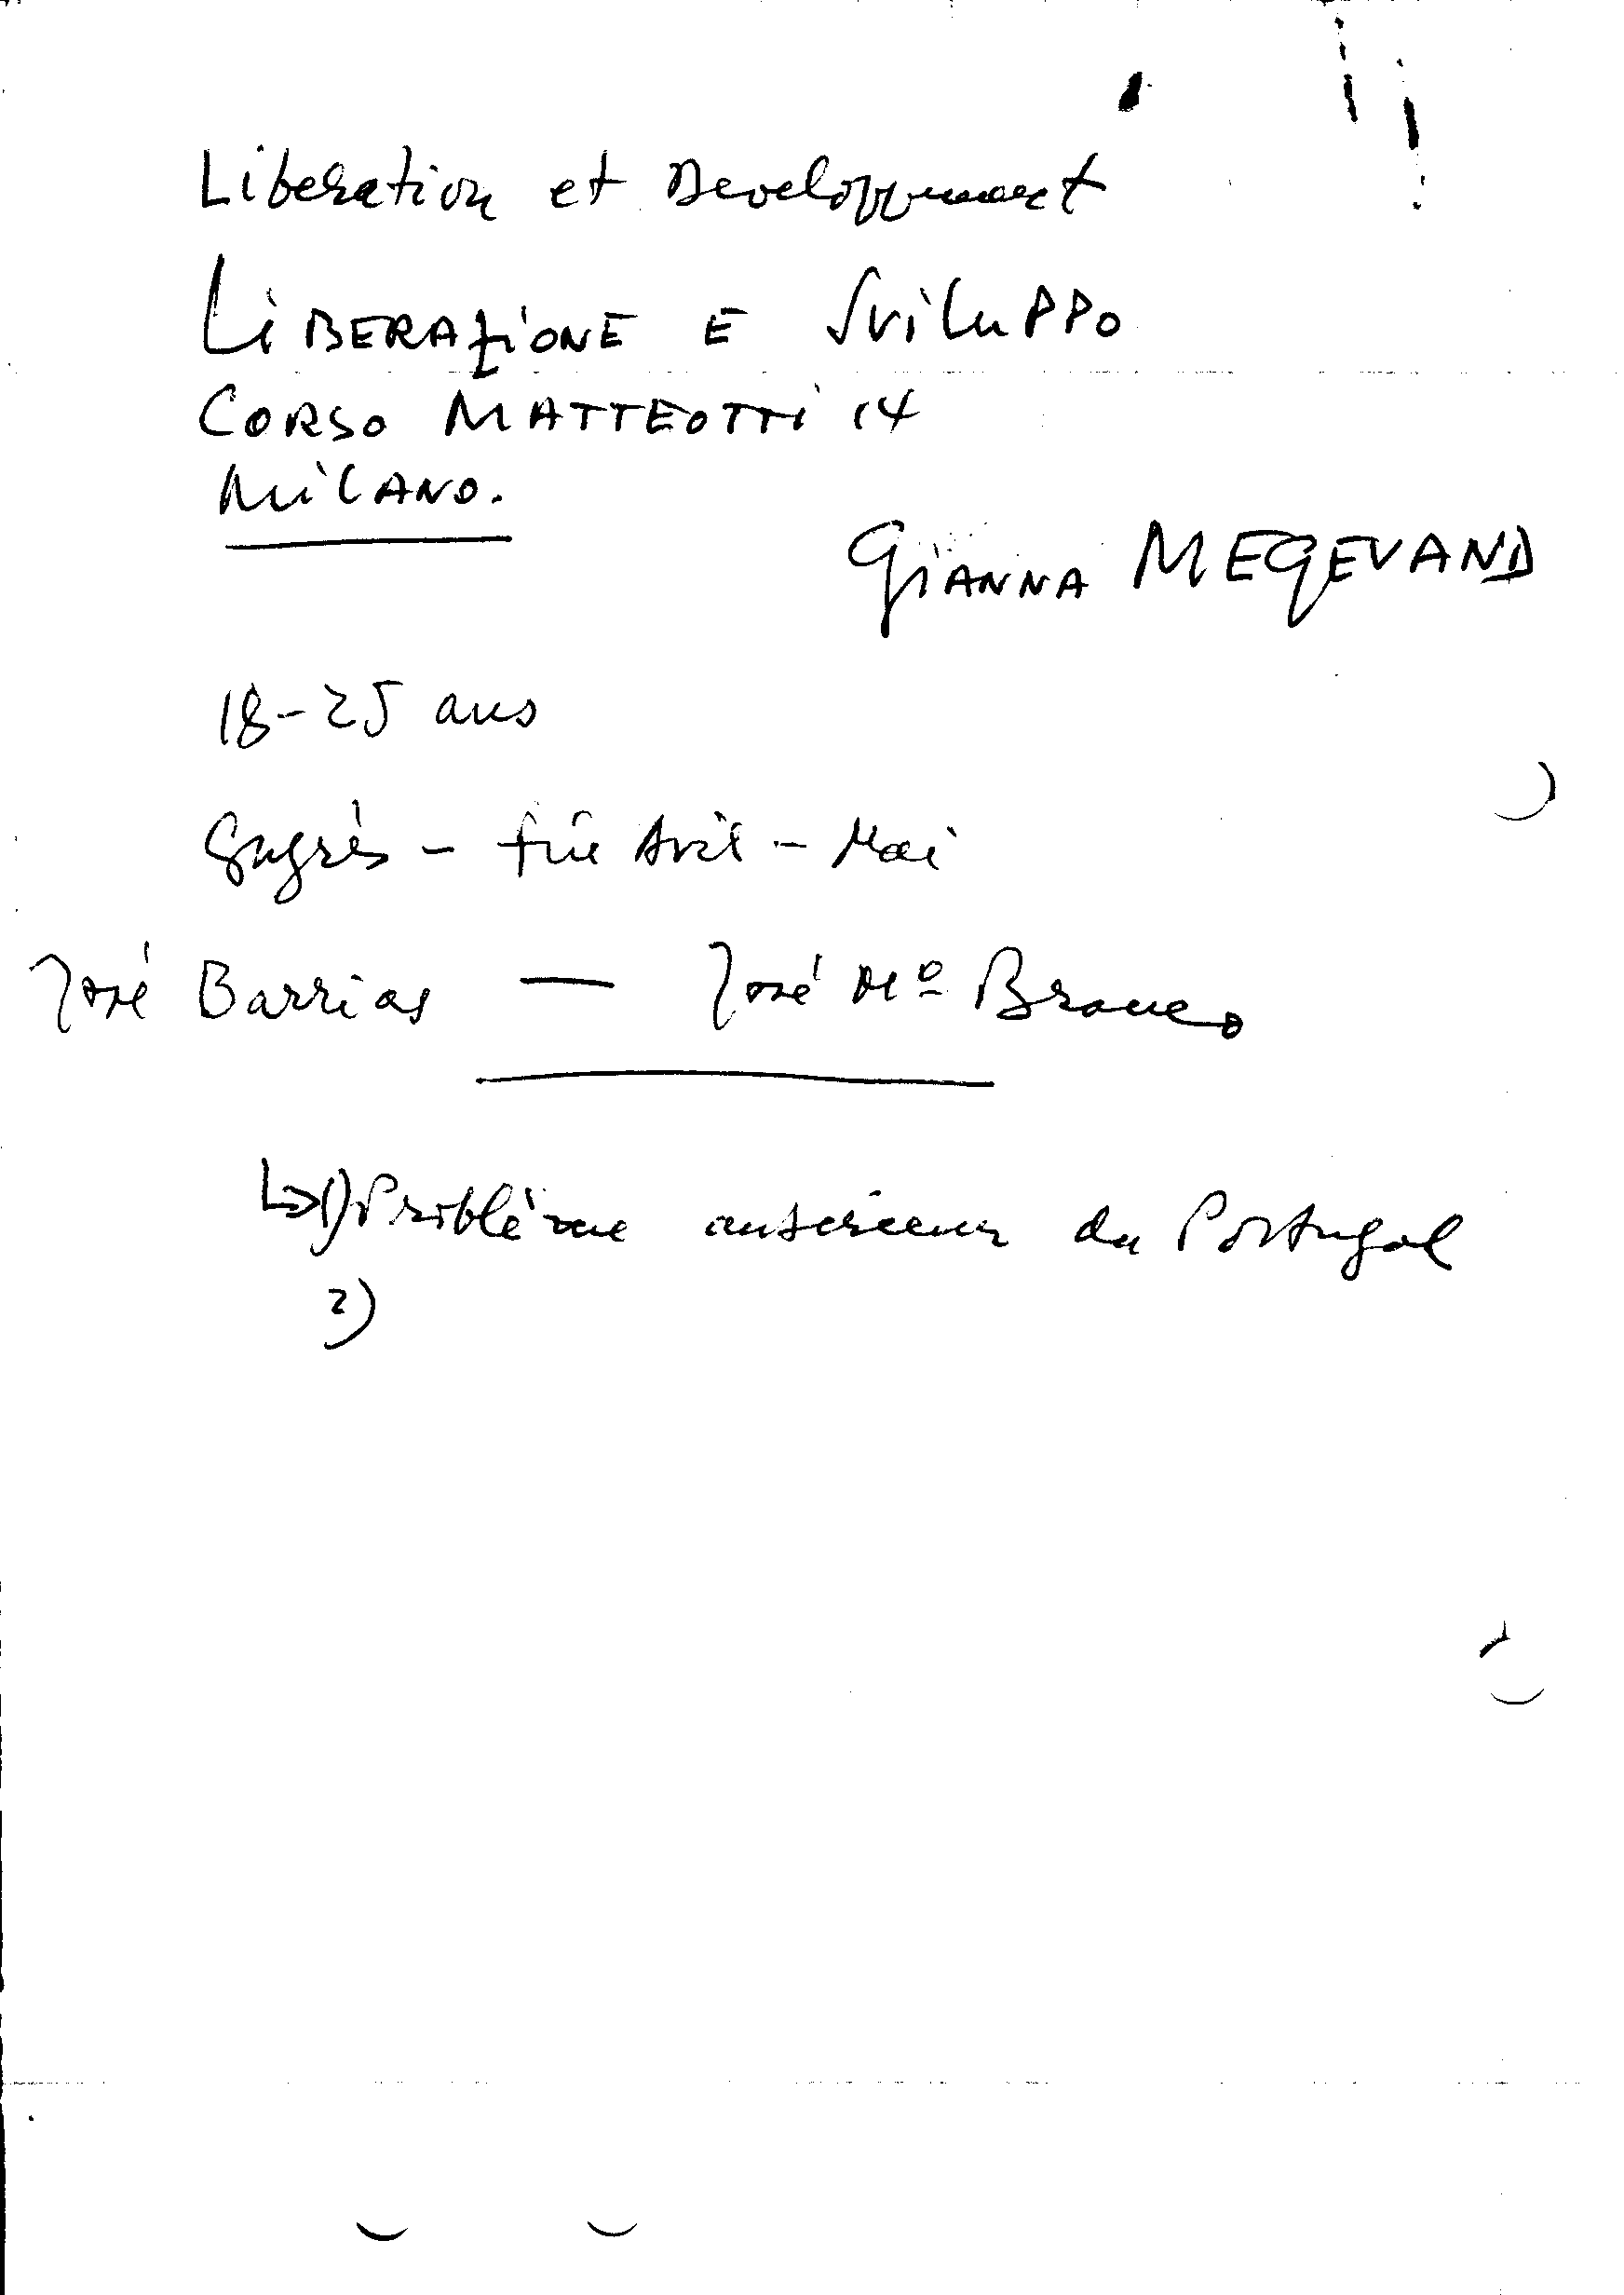 Liberation et Developpement
LIBERAZIONE E SVILUPPO
CORSO MATTEOTTI 14
MILANO.
GIANNA MEGEVAND
18-25 ans
- fin Avril - Mai
José Barrias — José Mº Branco
↳ 1) Problème du Portugal
2)